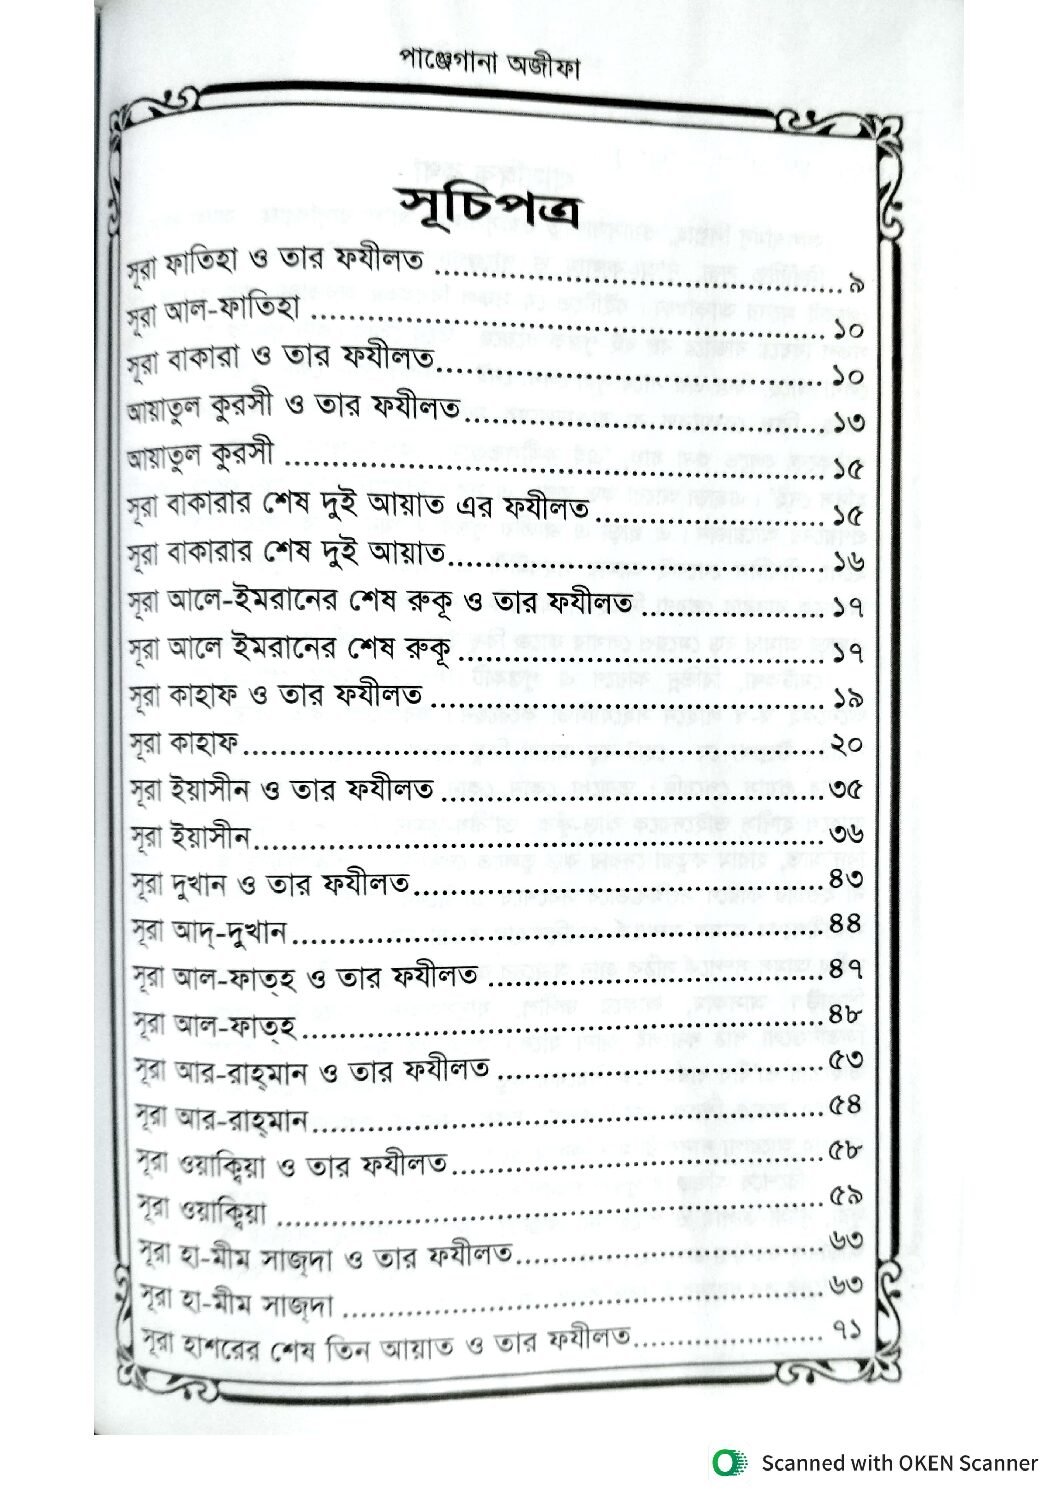 পাঞ্জেগানা অজীফা
সূচিপত্র
সূরা ফাতিহা ও তার ফযীলত ........................................................ ৯
সূরা আল-ফাতিহা ........................................................ ১০
সূরা বাকারা ও তার ফযীলত........................................................ ১০
আয়াতুল কুরসী ও তার ফযীলত ........................................................ ১৩
আয়াতুল কুরসী ........................................................ ১৫
সূরা বাকারার শেষ দুই আয়াত এর ফযীলত ................................. ১৫
সূরা বাকারার শেষ দুই আয়াত................................................. ১৬
সূরা আলে-ইমরানের শেষ রুকূ ও তার ফযীলত ........................ ১৭
সূরা আলে ইমরানের শেষ রুকূ ............................................... ১৭
সূরা কাহাফ ও তার ফযীলত .................................................. ১৯
সূরা কাহাফ........................................................................ ২০
সূরা ইয়াসীন ও তার ফযীলত ................................................. ৩৫
সূরা ইয়াসীন....................................................................... ৩৬
সূরা দুখান ও তার ফযীলত.................................................... ৪৩
সূরা আদ্-দুখান................................................................... ৪৪
সূরা আল-ফাত্হ ও তার ফযীলত ........................................... ৪৭
সূরা আল-ফাত্হ ................................................................. ৪৮
সূরা আর-রাহ্মান ও তার ফযীলত ......................................... ৫৩
সূরা আর-রাহ্মান................................................................ ৫৪
সূরা ওয়াক্বিয়া ও তার ফযীলত............................................... ৫৮
সূরা ওয়াক্বিয়া .................................................................... ৫৯
সূরা হা-মীম সাজ্দা ও তার ফযীলত....................................... ৬৩
সূরা হা-মীম সাজ্দা ............................................................ ৬৩
সূরা হাশরের শেষ তিন আয়াত ও তার ফযীলত........................ ৭১
Scanned with OKEN Scanner